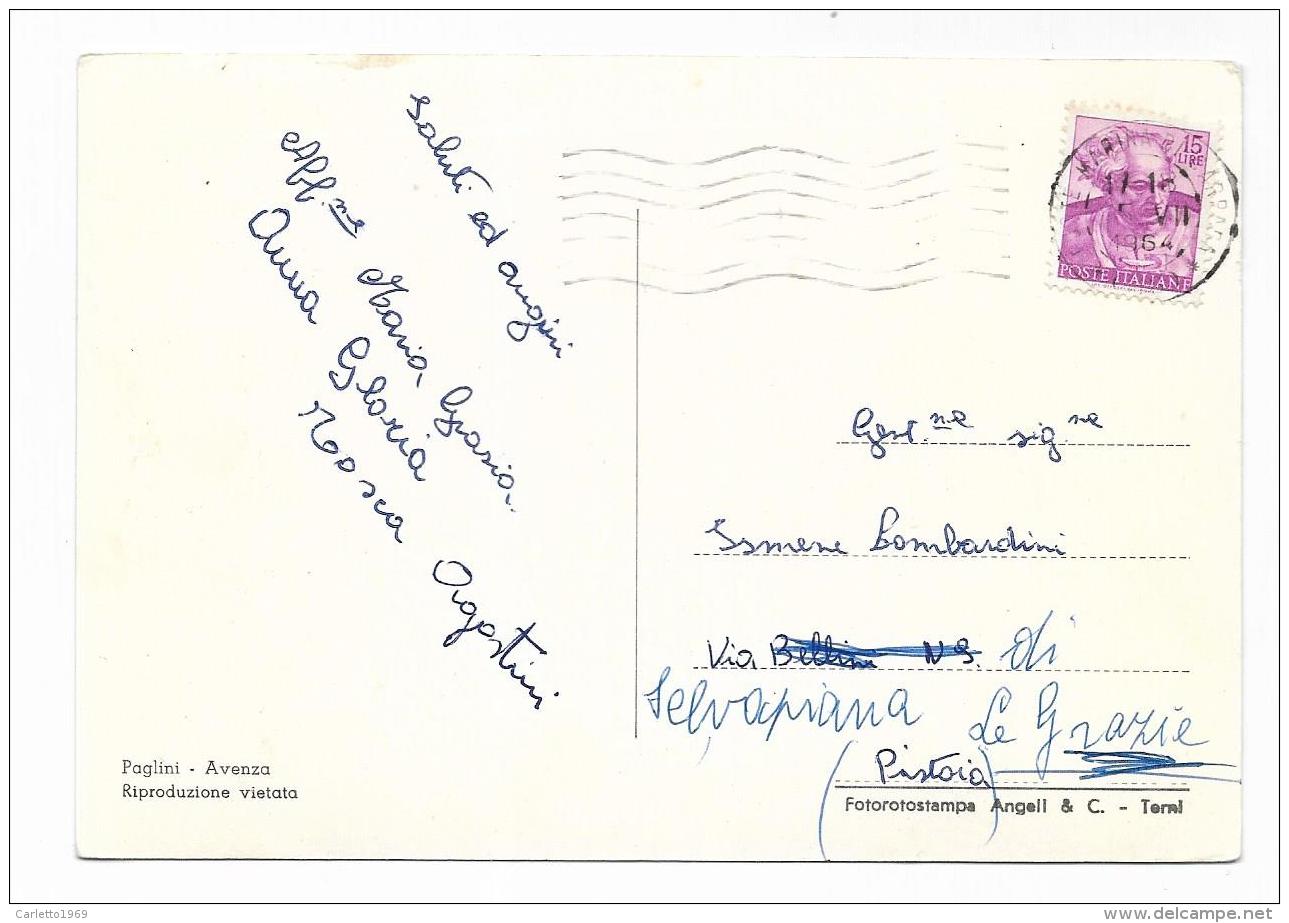 Saluti ed auguri
Aff.me Maria, Grazia,
Anna Gloria
Mosca Agostini
Paglini - Avenza
Riproduzione vietata
15
LIRE
1964
POSTE ITALIANE
Gent.me sig.ne
Ismene Lombardini
Via Bellini N 9. di
Selvapiana Le Grazie
(Pistoia)
Fotorotostampa Angeli & C. - Terni
Carletto1969
www.delcampe.net